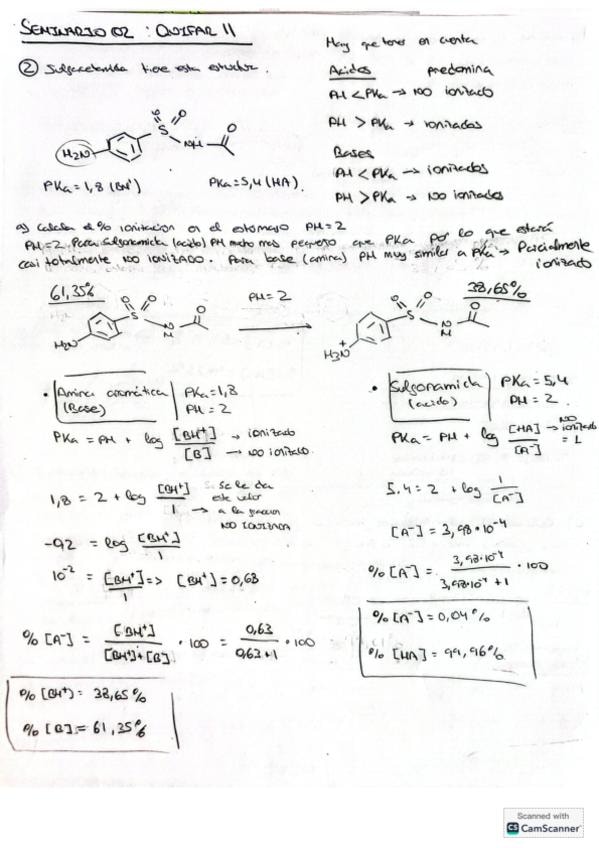 SEMINARIO 02 : QUIFAR II
② Sulfacetamida tiene esta estructura.
Hay que tener en cuenta
Acidos predomina
PH < PKa → no ionizado
PH > PKa → ionizados
Bases
PH < PKa → ionizados
PH > PKa → no ionizados
O O
S
NH
O
H2N
PKa = 1,8 (BH+) PKa = 5,4 (HA)
a) Calcula el % ionización en el estomago PH = 2
PH = 2. Para sulfonamida (acido) PH mucho mas pequeño que PKa por lo que estará
casi totalmente no ionizado. Para base (amina) PH muy similar a PKa → Parcialmente
ionizado
61,35% PH = 2 38,65%
H2N S O O O
H3N+ S O O O
• Amina aromática (Base) PKa = 1,8
PH = 2
PKa = PH + log [BH+] → ionizado
[B] → no ionizado
1,8 = 2 + log [BH+]
1 → se le da
este valor
a la fraccion
NO IONIZADA
-0,2 = log [BH+]
1
10-2 = [BH+] => [BH+] = 0,63
1
% [A-] = [BH+] · 100 = 0,63 · 100
[BH+] + [B] 0,63 + 1
% [BH+] = 38,65%
% [B] = 61,35%
• Sulfonamida (acido) PKa = 5,4
PH = 2
PKa = PH + log [HA] → NO ionizado = 1
[A-]
5,4 = 2 + log 1
[A-]
[A-] = 3,98·10-4
% [A-] = 3,98·10-4 · 100
3,98·10-4 + 1
% [A-] = 0,04%
% [HA] = 99,96%
Scanned with
CS CamScanner